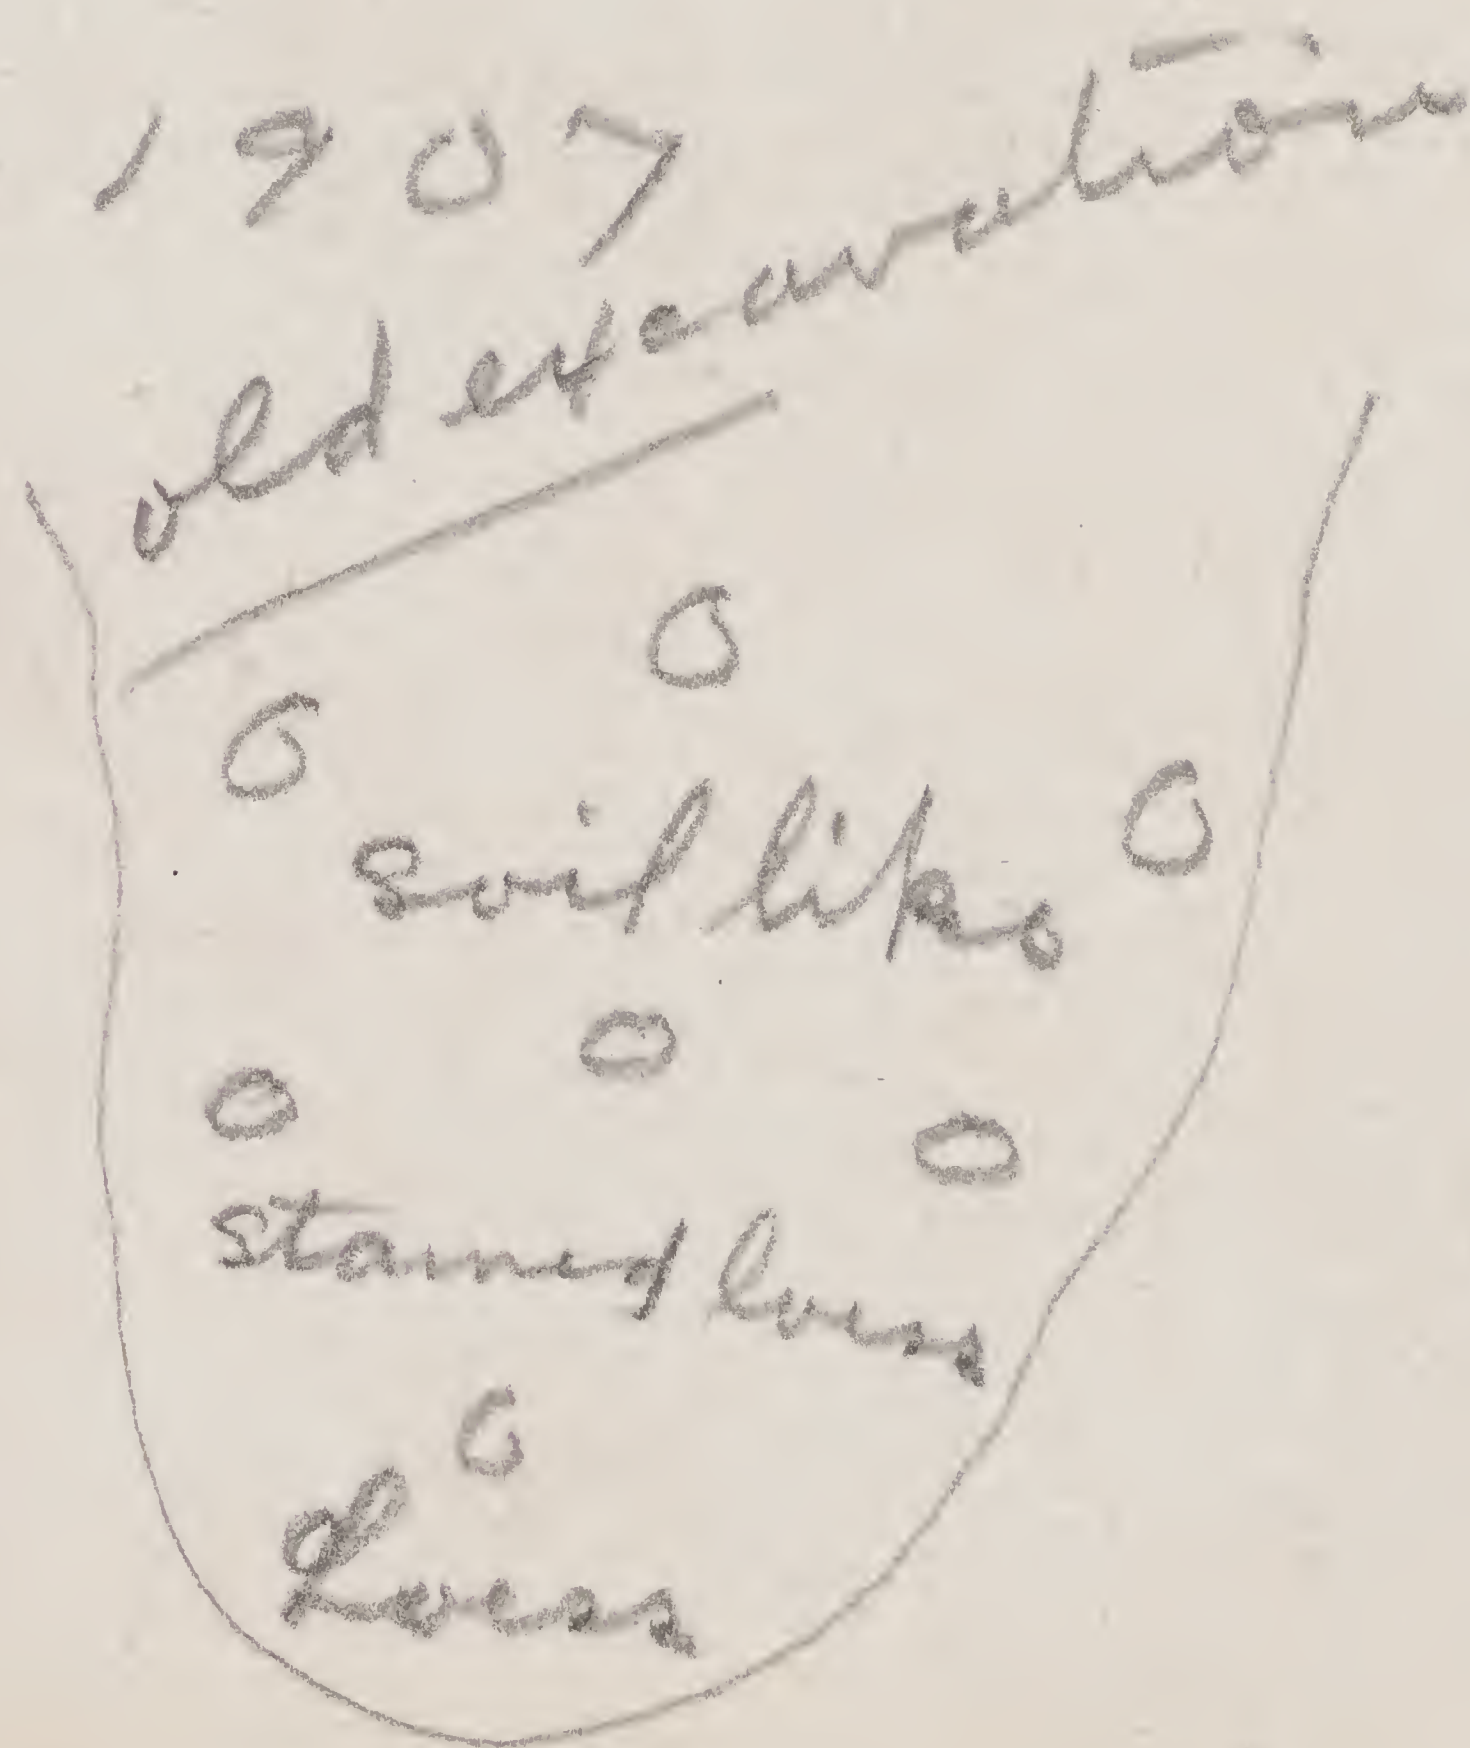 1907
old excavation
soil like
stained loess
Loess